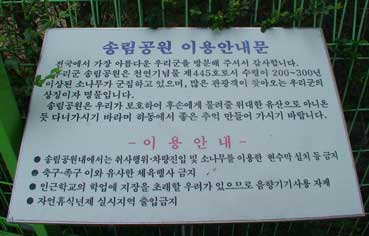 송림공원 이용안내문
전국에서 가장 아름다운 우리군을 방문해 주셔서 감사합니다.
우리군 송림공원은 천연기념물 제445호로서 수령이 200~300년
이상된 소나무가 군집하고 있으며, 많은 관광객이 찾아오는 우리군의
상징이자 명물입니다.
송림공원은 우리가 보호하여 후손에게 물려줄 위대한 유산으로 아니온
듯 다녀가시기 바라며 하동에서 좋은 추억 만들어 가시기 바랍니다.
- 이 용 안 내 -
● 송림공원내에서는 취사행위·차량진입 및 소나무를 이용한 현수막 설치 등 금지
● 축구·족구 이와 유사한 체육행사 금지
● 인근학교의 학업에 지장을 초래할 우려가 있으므로 음향기기사용 자제
● 자연휴식년제 실시지역 출입금지